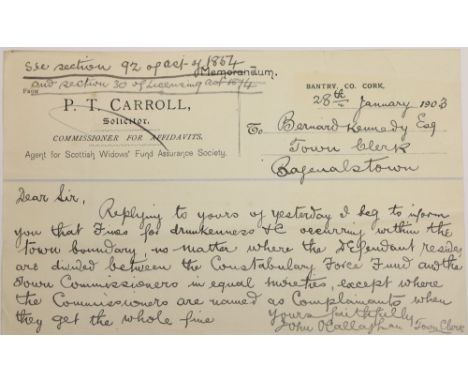 See section 92 of act of 1854
Memorandum.
and section 30 of Licensing act 1874
From
P. T. CARROLL,
Solicitor,
COMMISSIONER FOR AFFIDAVITS.
Agent for Scottish Widows' Fund Assurance Society.
BANTRY, CO. CORK,
28th January 1903
To Bernard Kennedy Esq
Town Clerk
Bagenalstown
Dear Sir,
Replying to yours of yesterday I beg to inform
you that Fines for drunkenness &c occurring within the
town boundary, no matter where the defendant resides
are divided between the Constabulary Force Fund and the
Town Commissioners in equal moieties, except where
the Commissioners are named as Complainants when
they get the whole fine
Yours faithfully
John O'Callaghan Town Clerk